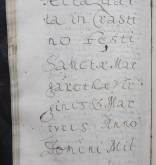 ta in Crasti
no Festi
Sanctæ Mar
garetæ Vir
ginis & Mar
tyris Anno
Domini Mil